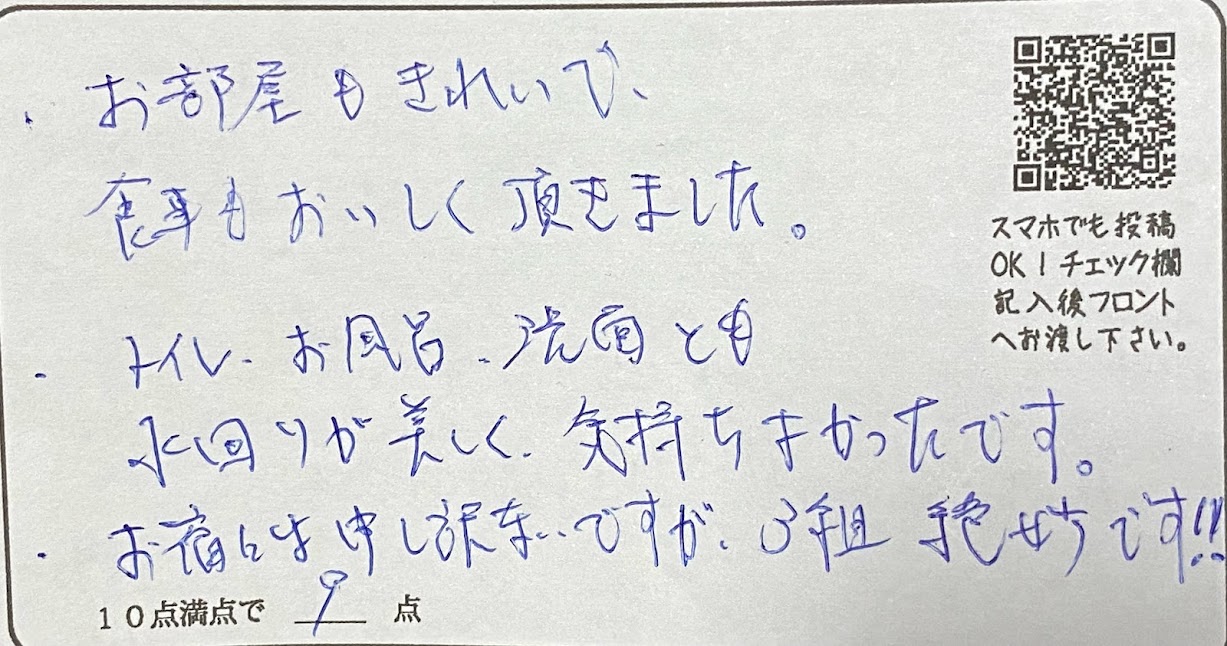 ・お部屋もきれいで、
食事もおいしく頂きました。
・トイレ、お風呂、洗面とも
水回りが美しく、気持ちよかったです。
・お宿には申し訳ないですが、3組絶妙です!!
10点満点で 9 点
スマホでも投稿
OK!チェック欄
記入後フロント
へお渡し下さい。